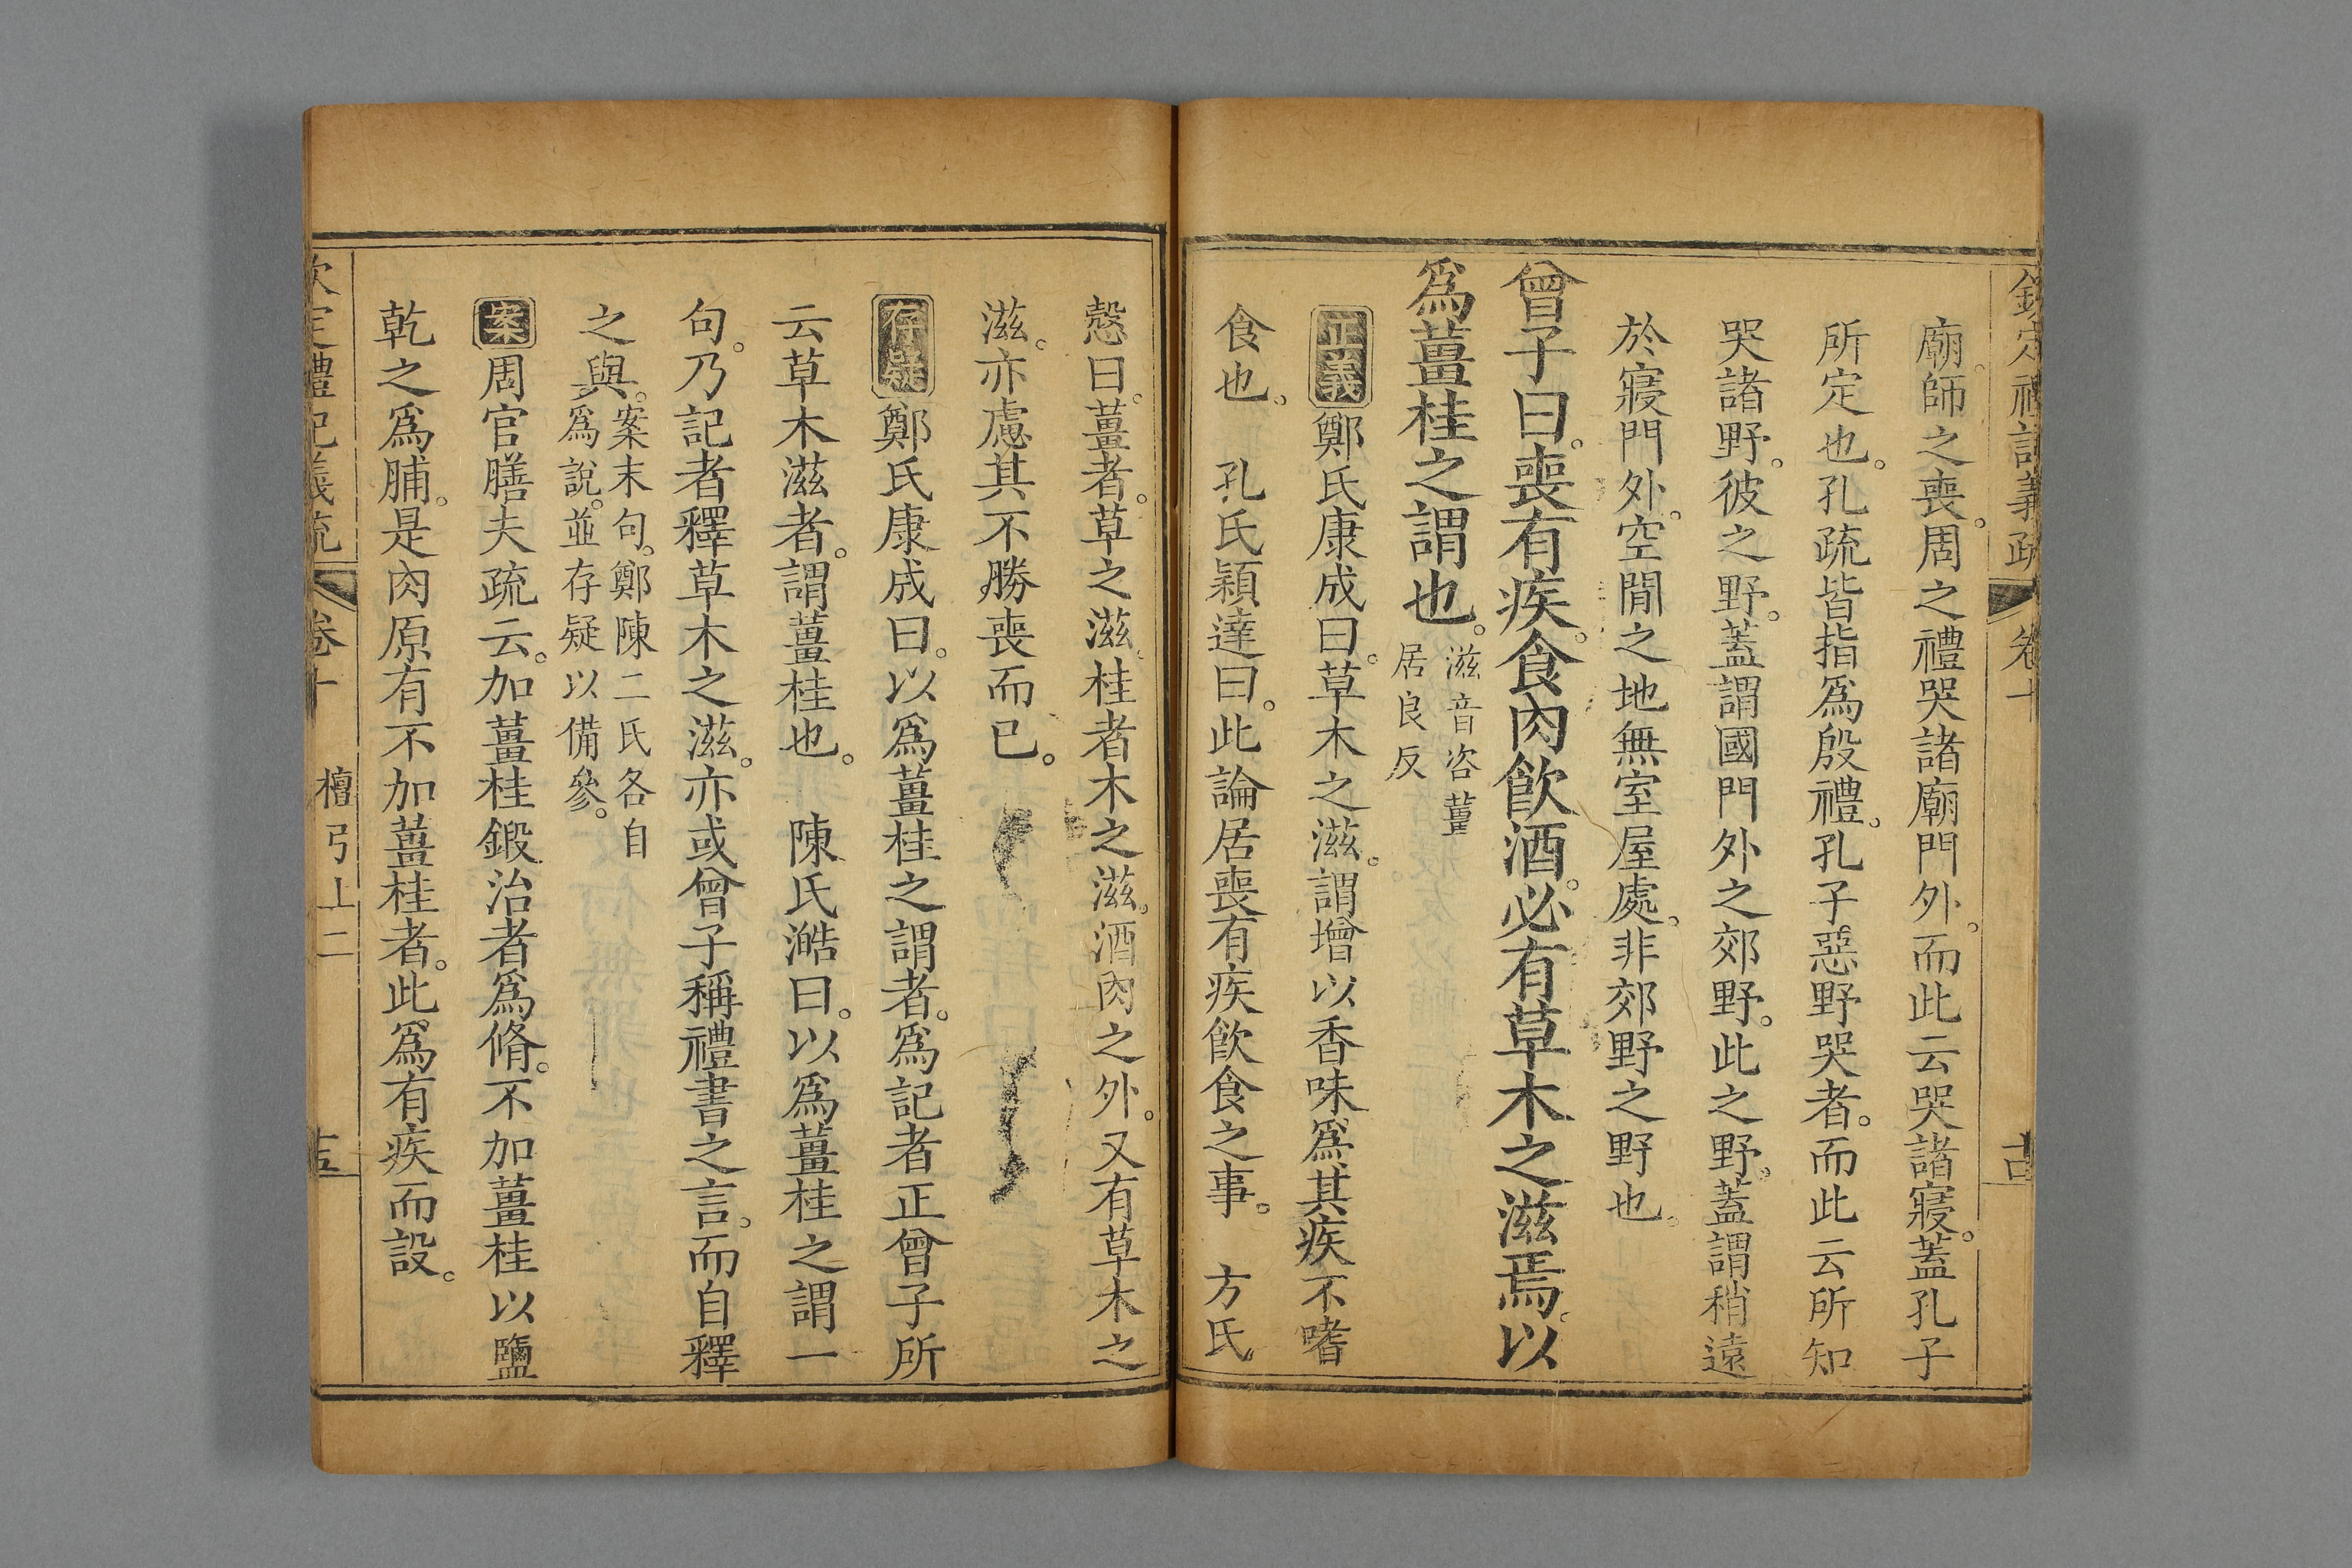 欽定禮記義疏 卷十
廟。師之喪。周之禮哭諸廟門外。而此云哭諸寢。蓋孔子
所定也。孔疏皆指爲殷禮。孔子惡野哭者。而此云所知
哭諸野。彼之野。蓋謂國門外之郊野。此之野。蓋謂稍遠
於寢門外。空閒之地無室屋處。非郊野之野也。
曾子曰。喪有疾。食肉飲酒。必有草木之滋焉。以
爲薑桂之謂也。滋音咨薑
居良反
正義鄭氏康成曰。草木之滋。謂增以香味。爲其疾不嗜
食也。 孔氏穎達曰。此論居喪有疾飲食之事。 方氏
慤曰。薑者。草之滋。桂者木之滋。酒肉之外。又有草木之
滋。亦慮其不勝喪而已。
存疑鄭氏康成曰。以爲薑桂之謂者。爲記者正曾子所
云草木滋者。謂薑桂也。 陳氏澔曰。以爲薑桂之謂一
句。乃記者釋草木之滋。亦或曾子稱禮書之言。而自釋
之與。案末句。鄭陳二氏各自
爲說。並存疑以備參。
案周官膳夫疏云。加薑桂鍛治者爲脩。不加薑桂以鹽
乾之爲脯。是肉原有不加薑桂者。此爲有疾而設。
欽定禮記義疏 卷十 檀弓上二